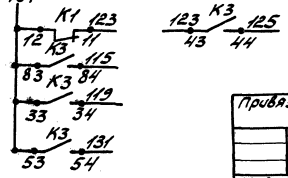 К1 123
12 11
К3 115
83 84
К3 119
33 34
К3 131
53 54
123 К3 125
43 44
Привяз